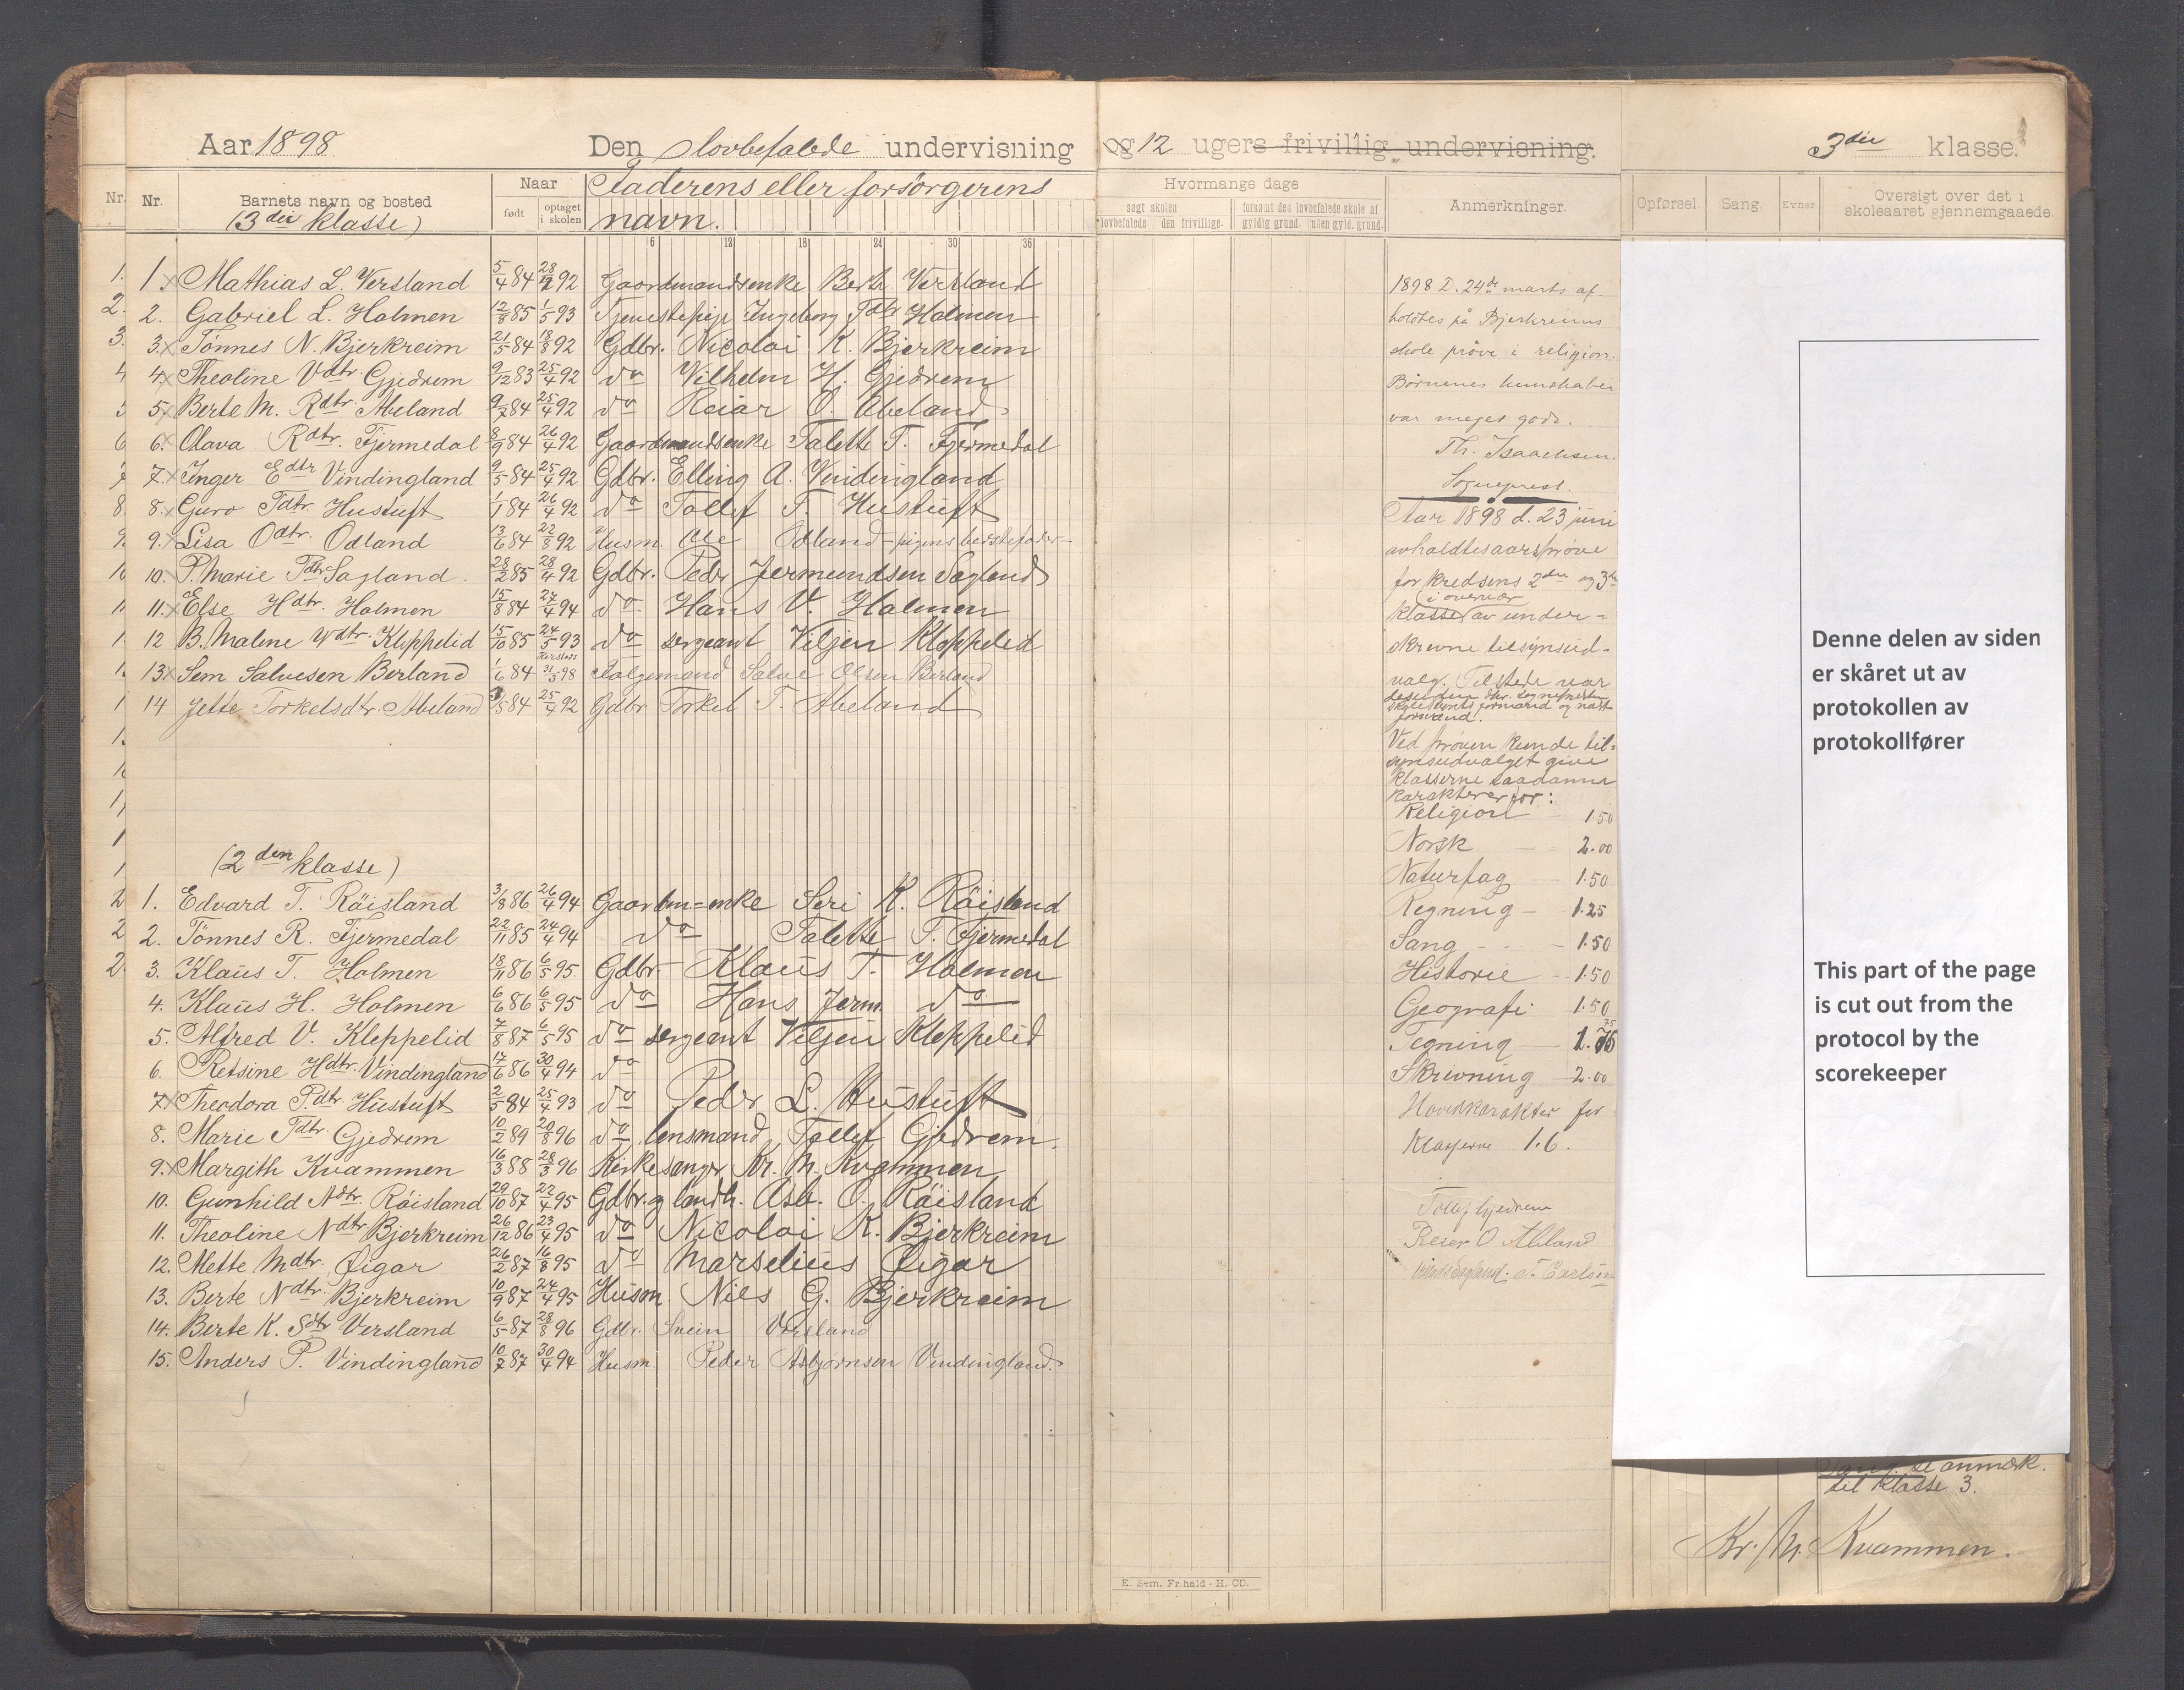 Aar 1898 Den lovbefalede undervisning og 12 ugers frivillig undervisning. 3die klasse.
Nr. Nr. Barnets navn og bosted Naar født optaget i skolen Faderens eller forsörgerens navn.
(3die klasse)
Hvormange dage
søgt skolen forsømt den lovbefalede skole af
lovbefalede den frivillige. gyldig grund. uden gyld. grund.
Anmerkninger.
Opførsel. Sang. Evner Oversigt over det i skoleaaret gjennemgaaede.
6 12 18 24 30 36
1. x Mathias L. Versland 5/4 84 92 Gaardmandsenke Berte Versland
2. Gabriel L. Holmen 12/8 85 1/5 93 Tjenestepige Ingeborg Tdtr Holmen
3. x Tönnes N. Bjerkreim 21/5 84 18/8 92 Gdbr. Nicolai K. Bjerkreim
4. x Theoline Vdtr. Gjedrem 9/12 83 25/4 92 do Vilhelm H. Gjedrem
5. x Berte M. Rdtr. Abeland 9/7 84 25/4 92 do Reiar O. Abeland
6. x Olava Rdtr. Fjermedal 8/9 84 26/4 92 Gaardmandsenke Talette T. Fjermedal
7. x Inger Edtr Vindingland 9/5 84 25/4 92 Gdbr. Elling A. Vindingland
8. x Guro Tdtr. Hustuft 1/1 84 26/4 92 do Tollef T. Hustuft
9. x Lisa Odtr. Odland 13/6 84 22/8 92 Husm. Ole Odland - pigens bedstefader -
10. P. Marie Pdtr Sagland. 28/2 85 28/4 92 Gdbr. Peder Jermundsen Sagland
11. x Else Hdtr. Holmen 15/8 84 27/4 94 do Hans V. Holmen
12 B. Malene Wdtr. Kleppelid 15/10 85 24/5 93 do sergeant Viljen Kleppelid
13 x Sem Salvesen Berland 1/6 84 31/5 98 Folgemand Salve Olsen Berland
14 Jette Torkelsdtr. Abeland 84 25/4 92 Gdbr Torkel T. Abeland
(2den klasse)
1. Edvard T. Röisland 3/8 86 26/4 94 Gaardm=enke Seri K. Röisland
2. Tönnes R. Fjermedal 22/11 85 24/4 94 do Talette T. Fjermedal
3. Klaus T. Holmen 18/11 86 6/5 95 Gdbr Klaus T. Holmen
4. Klaus H. Holmen 6/6 86 6/5 95 do Hans Jerm. do
5. Alfred V. Kleppelid 7/8 87 6/5 95 do sergeant Viljen Kleppelid
6. Retsine Hdtr. Vindingland 17/6 86 30/4 94 do
7. x Theodora Pdtr. Hustuft 2/5 84 25/4 93 do Peder L. Hustuft
8. Marie Tdtr. Gjedrem 10/2 89 20/8 96 do lensmand Tollef Gjedrem.
9. x Margith Kvammen 16/3 88 28/3 96 Kirkesanger Kr. M. Kvammen
10. Gunhild Ndtr. Röisland 29/10 87 22/4 95 Gdbr. og landh. Asb. O. Röisland
11. Theoline Ndtr Bjerkreim 26/12 86 23/4 95 do Nicolai K. Bjerkreim
12. Mette Mdtr. Øigar 26/2 87 16/8 95 do Marselius Øigar
13. Berte Ndtr. Bjerkreim 10/9 87 24/4 95 Husm. Nils G. Bjerkreim
14. Berte K. Sdtr Versland 6/5 87 28/8 96 Gdbr. Svein Versland
15. Anders P. Vindingland 10/7 87 30/4 94 Husm. Peder Asbjørnsen Vindingland.
1898 d. 24de marts af-
holdtes på Bjerkreims
skole pröve i religion.
Börnenes kundskaber
var meget gode.
Th. Isaachsen.
Sogneprest.
Aar 1898 d. 23 juni
avholdtes aarspröve
for kredsens 2den og 3die
(i overvær
klasse) av under-
skrevne tilsynsud-
valg. Tilstede var
desuden hr. sogneprest
skolestyrets formand og næst-
formand.
Ved pröven kunde til-
synsudvalget give
klasserne saadanne
karakterer for:
Religion 1.50
Norsk 2.00
Naturfag 1.50
Regning 1.25
Sang 1.50
Historie 1.50
Geografi 1.50
Tegning 1.75
Skrivning 2.00
Hovedkarakter for
klasserne 1.6.
Tollef Gjedrem
Reier O Abeland
Denne delen av siden
er skåret ut av
protokollen av
protokollfører
This part of the page
is cut out from the
protocol by the
scorekeeper
Sang se anmærk.
til klasse 3.
Kr. M. Kvammen.
E. Sem. Fr.hald - H. OD.